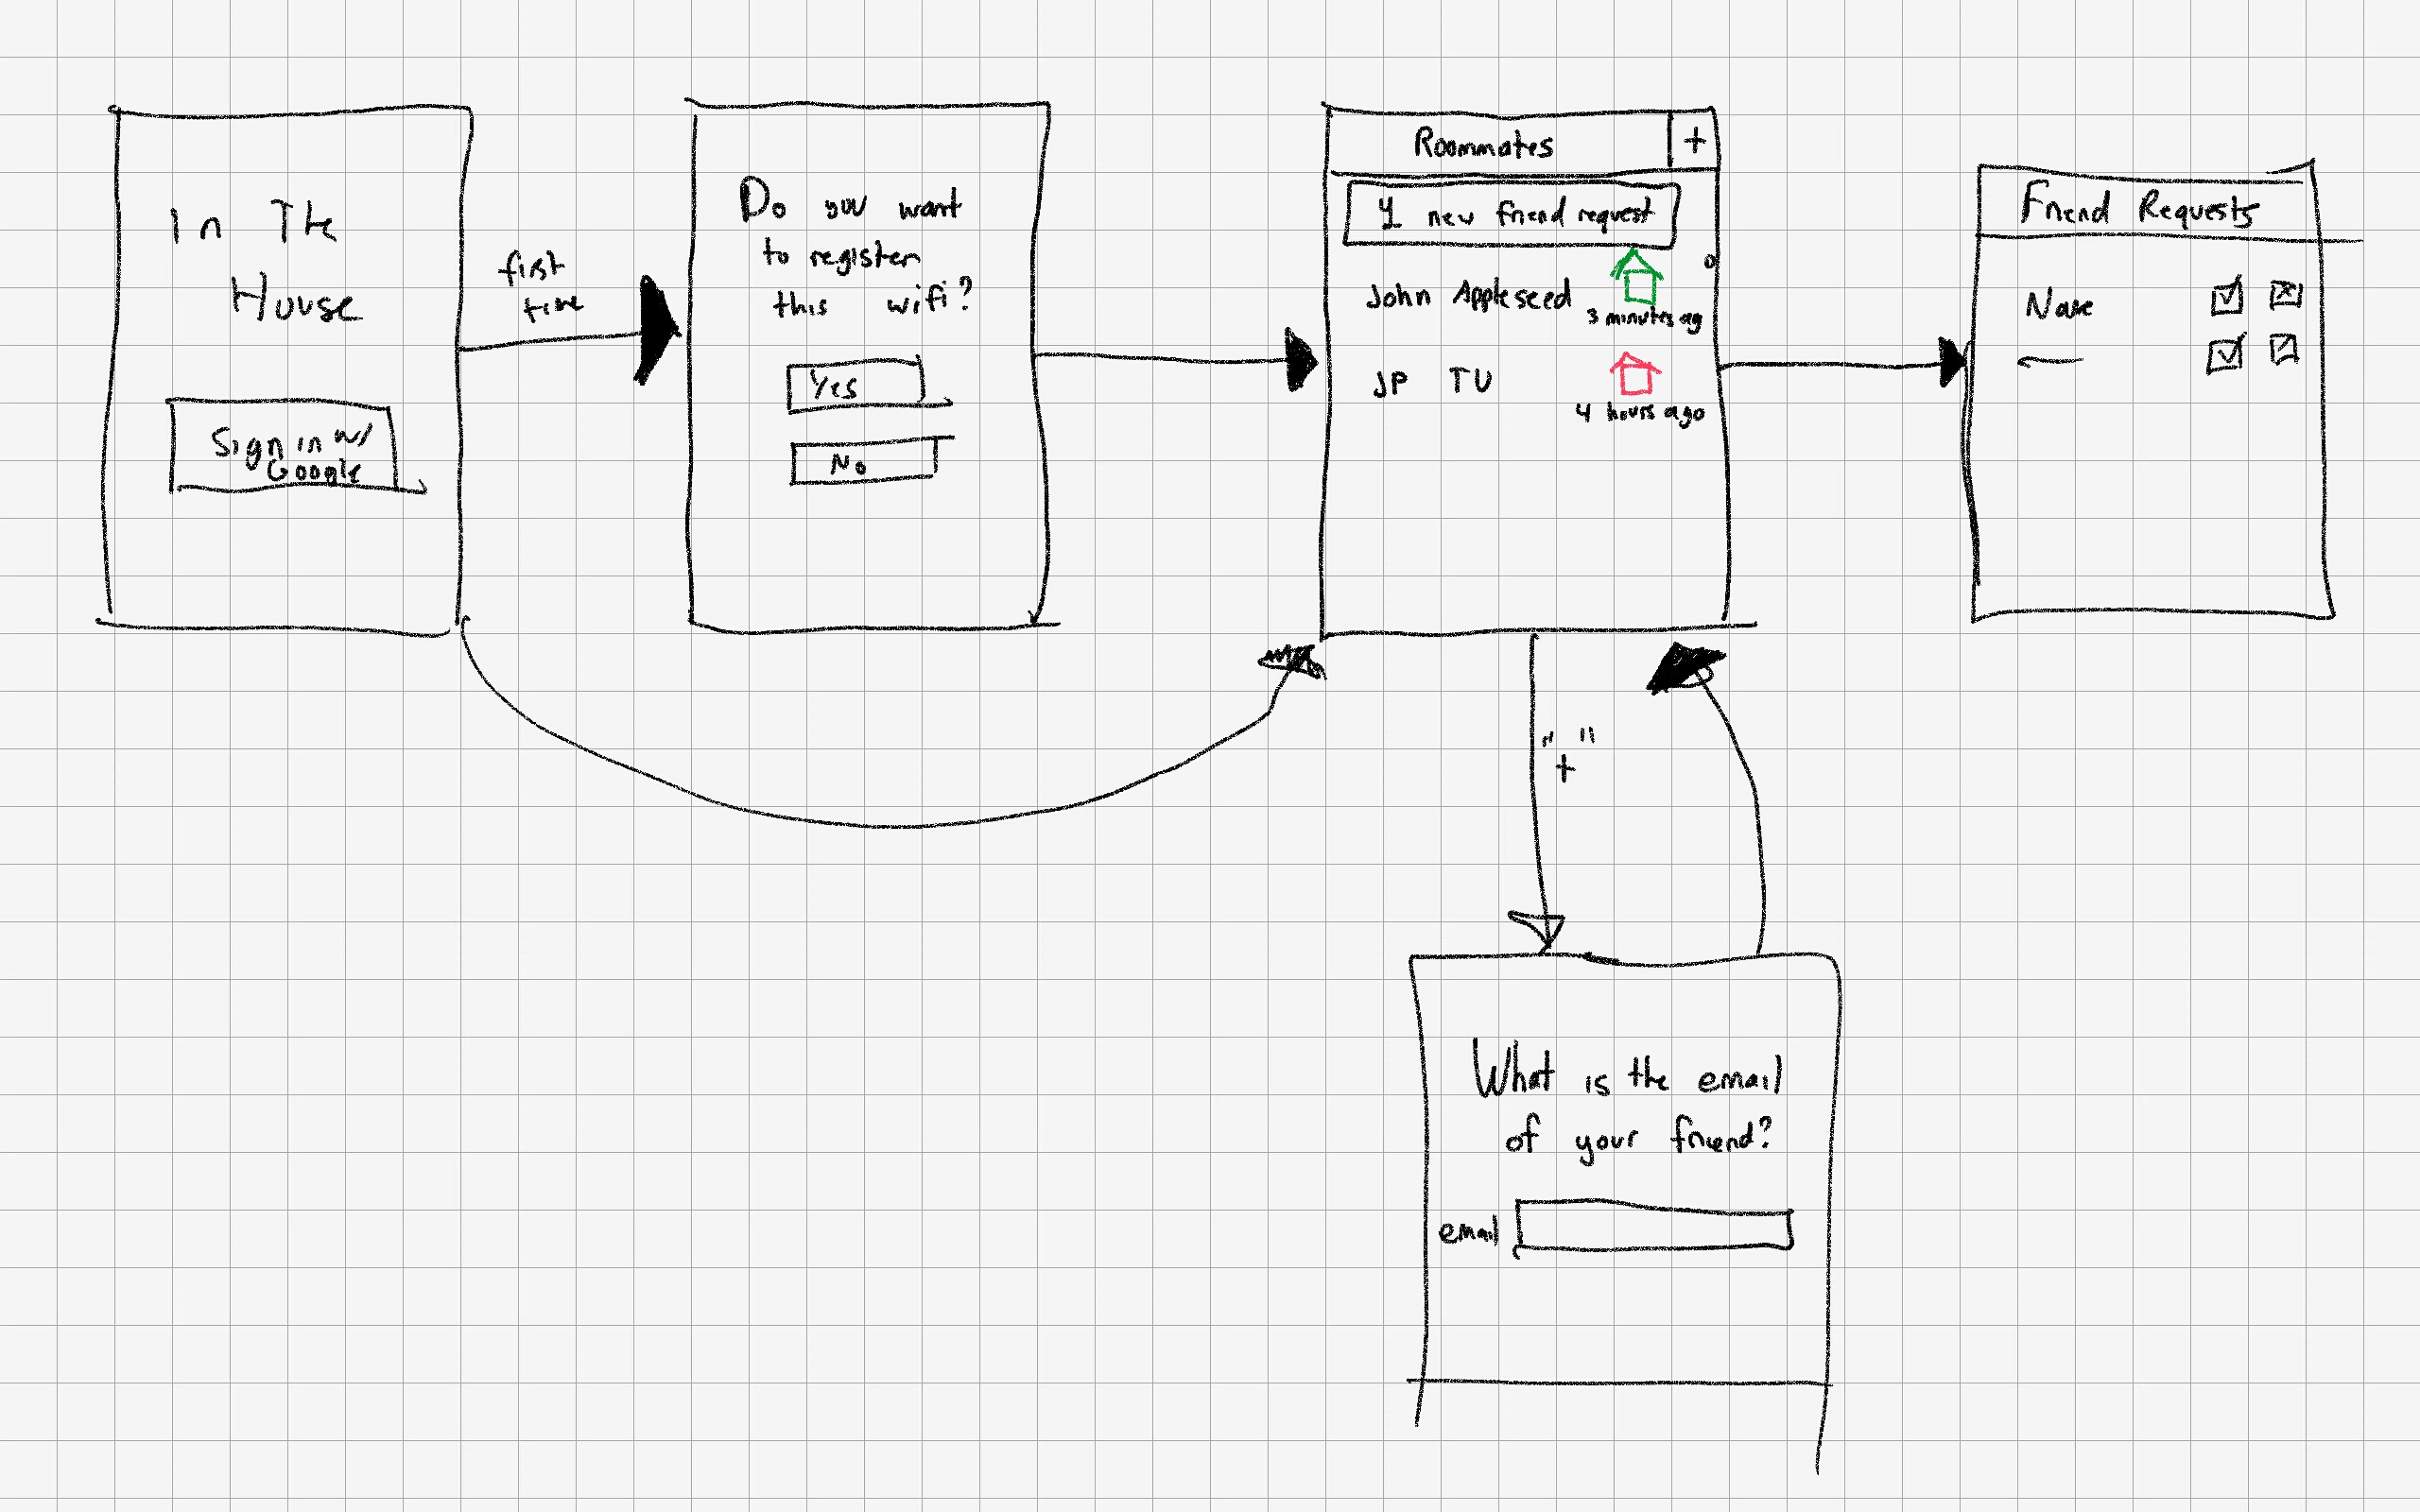 In The
House
Sign in w/
Google
first
time
Do you want
to register
this wifi?
Yes
No
Roommates +
1 new friend request
John Appleseed
3 minutes ag
JP TU
4 hours ago
Friend Requests
Name
"+"
What is the email
of your friend?
email